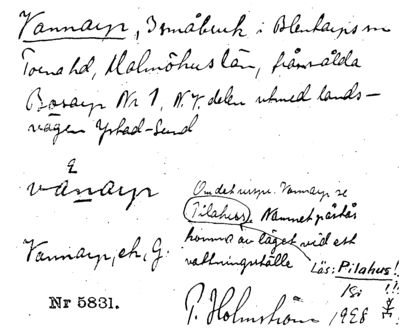 Vannaryr, Småbruk i Blentarps sn
Torna hd, Malmöhus län, frånsålda
Bosarp Nr 1, N.V. delen utmed lands-
vägen Ystad-Lund
vånaryr
Om det urspr. Vannaryr se
Pilahus. Namnet påstås
komma av läget vid ett
vattningsställe
Läs: Pilahus!
Vannaryr, ek, G.
Nr 5831.
P. Holmström 1928